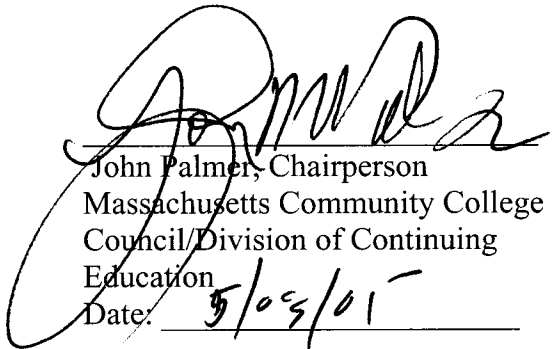 John Palmer, Chairperson
Massachusetts Community College
Council/Division of Continuing
Education
Date: